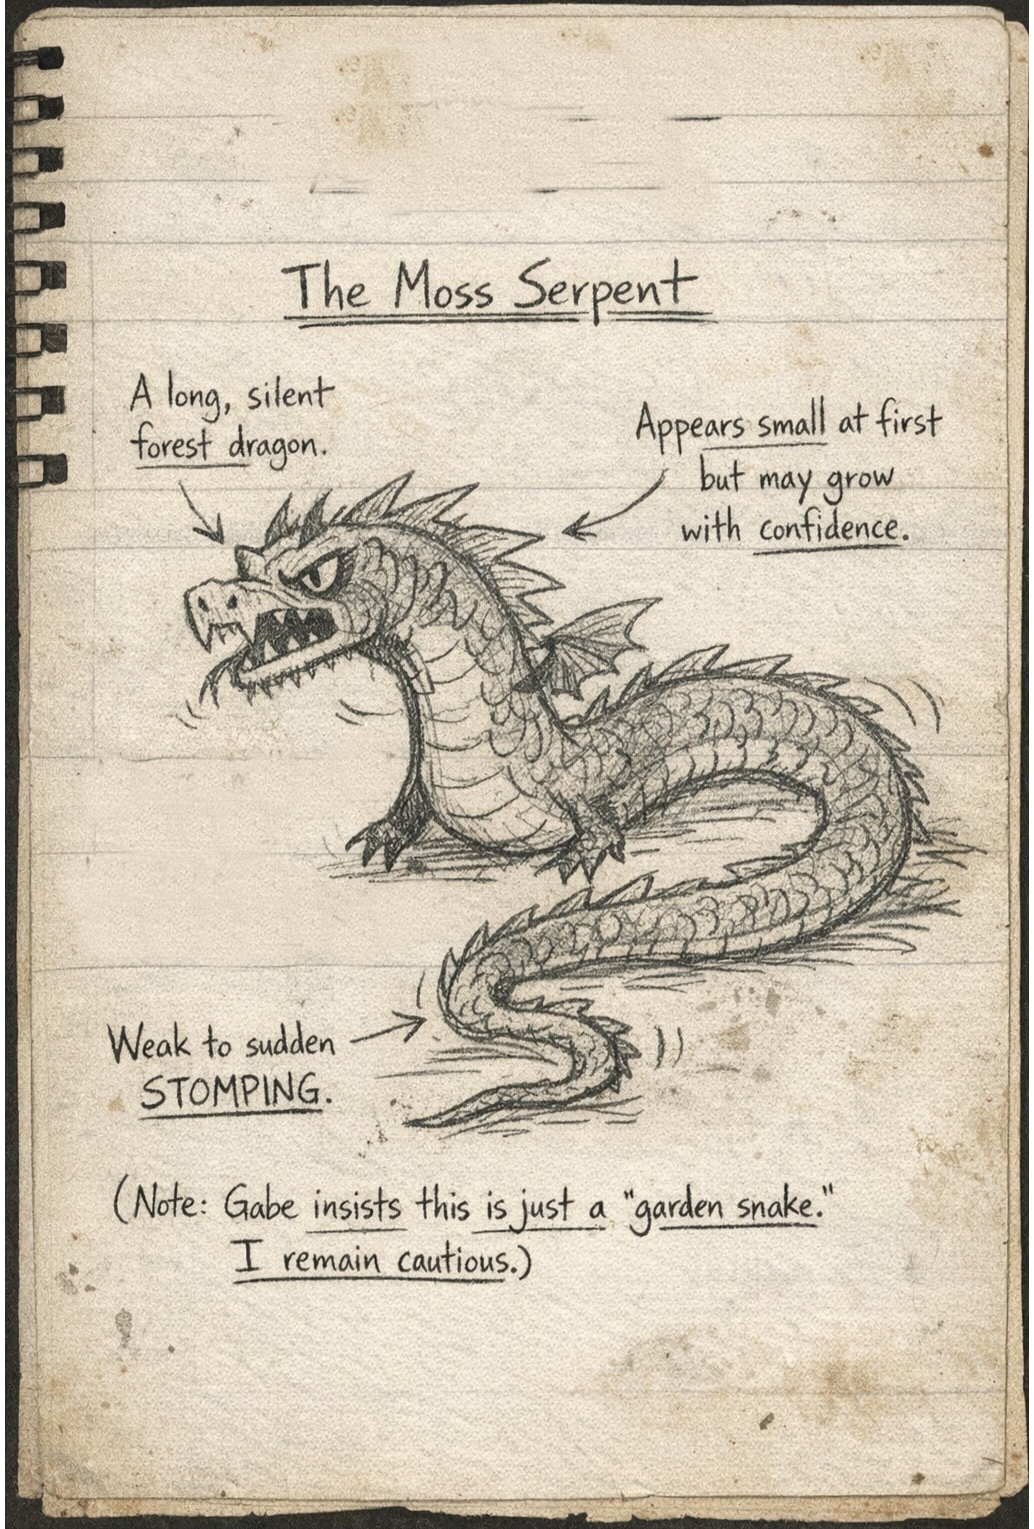 The Moss Serpent
A long, silent
forest dragon.
Appears small at first
but may grow
with confidence.
Weak to sudden
STOMPING.
(Note: Gabe insists this is just a "garden snake."
I remain cautious.)